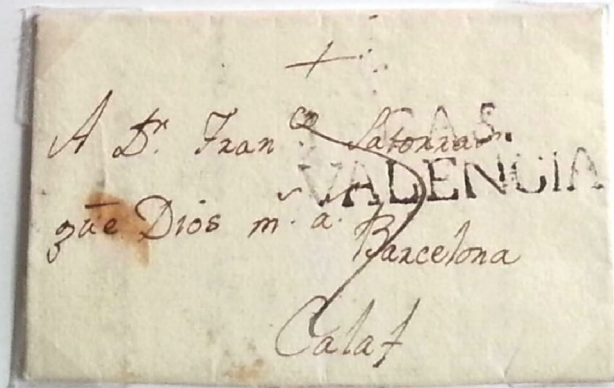 +
A Dn. Franco Satorras
CAS.
VALENCIA
que Dios ms. as.
Barcelona
Calaf